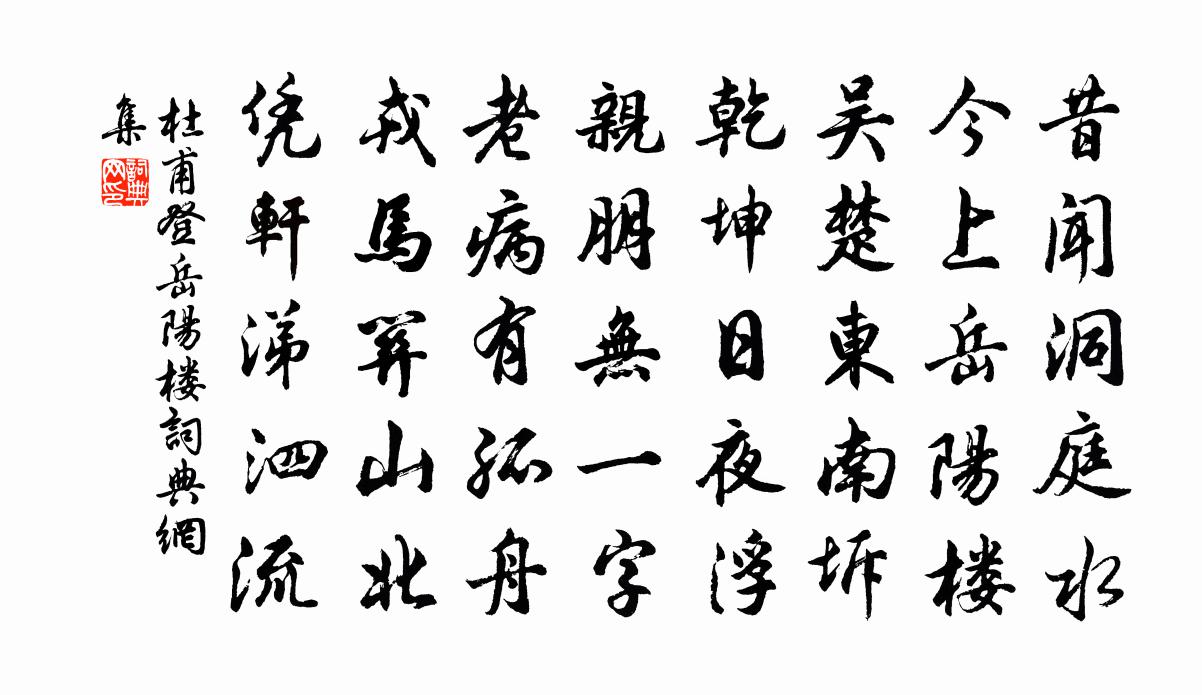 昔聞洞庭水
今上岳陽楼
吴楚東南坼
乾坤日夜浮
親朋無一字
老病有孤舟
戎馬関山北
凭軒涕泗流
杜甫登岳陽楼詞典網
集
詞典网印